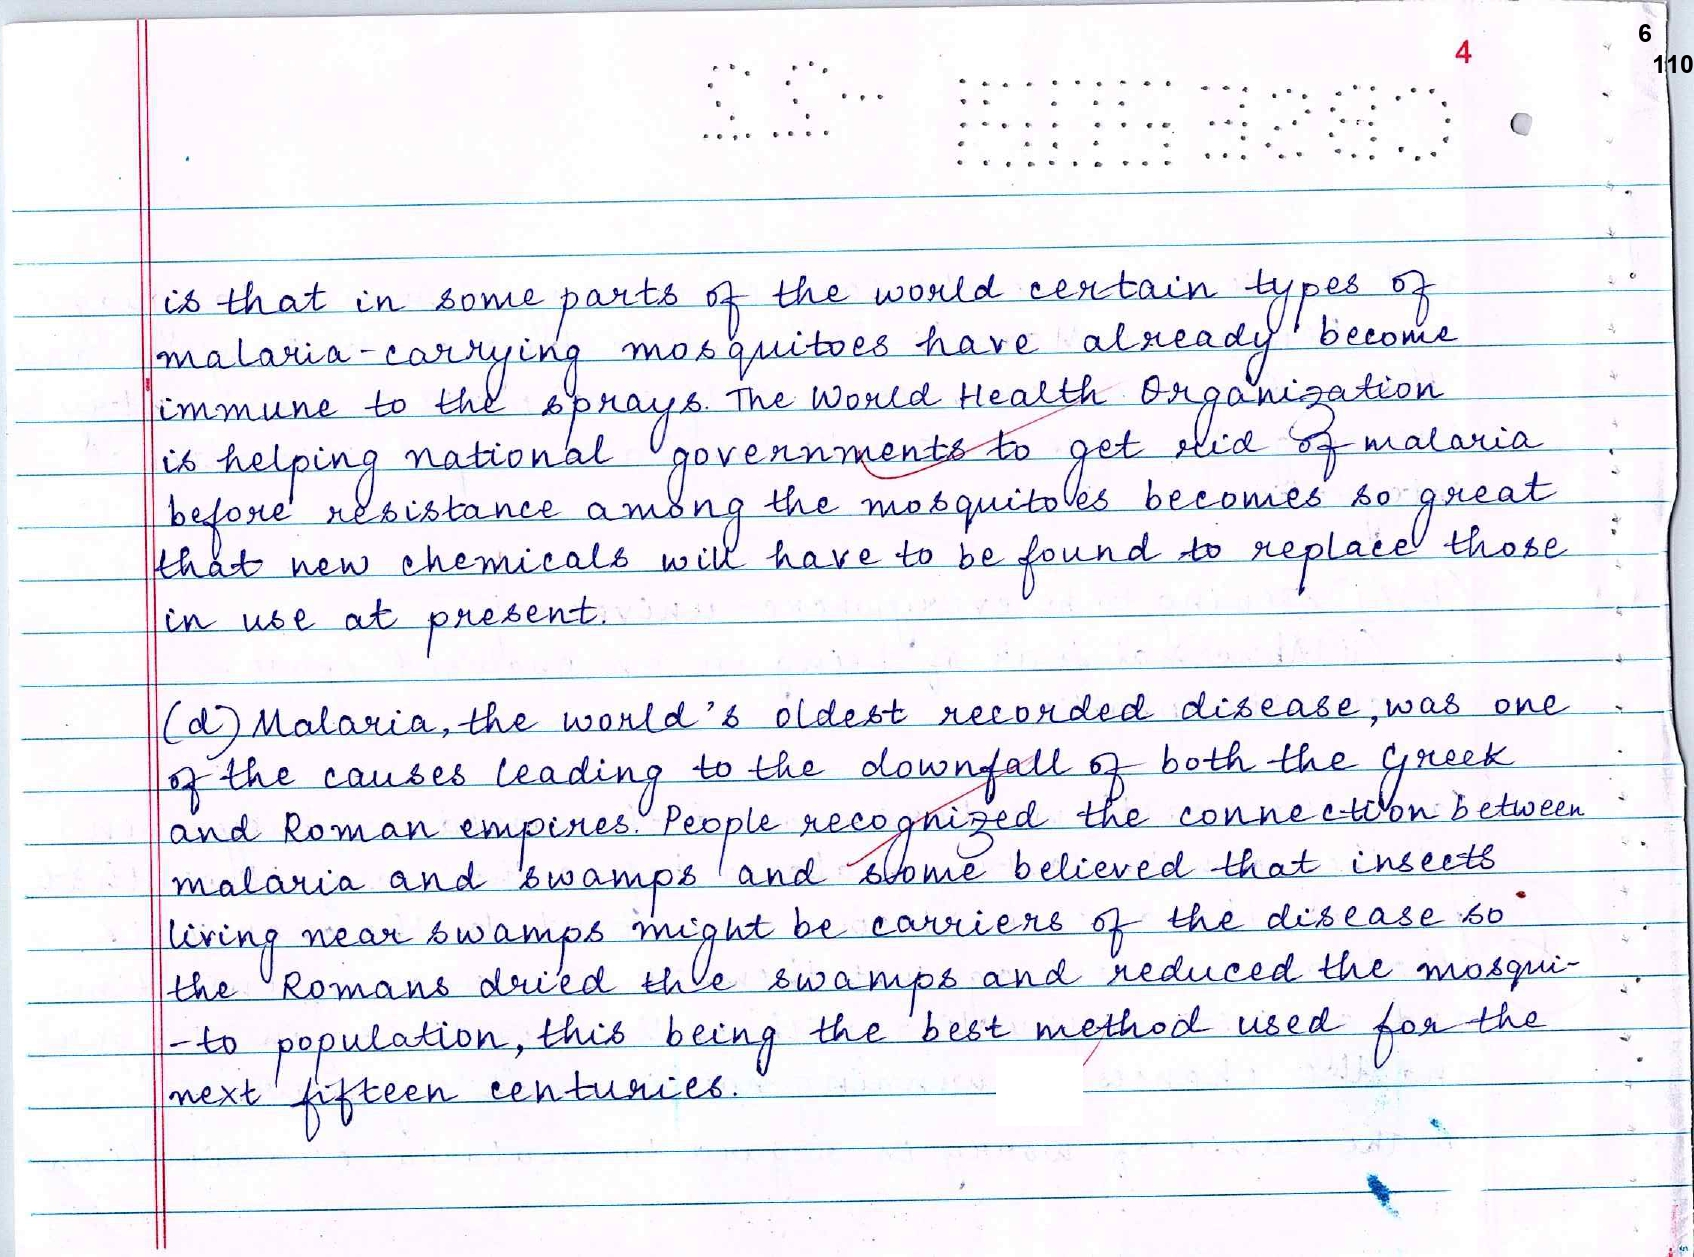 6
4
110
is that in some parts of the world certain types of
malaria-carrying mosquitoes have already become
immune to the sprays. The World Health Organization
is helping national governments to get rid of malaria
before resistance among the mosquitoes becomes so great
that new chemicals will have to be found to replace those
in use at present.
(d) Malaria, the world's oldest recorded disease, was one
of the causes leading to the downfall of both the Greek
and Roman empires. People recognized the connection between
malaria and swamps and some believed that insects
living near swamps might be carriers of the disease so
the Romans dried the swamps and reduced the mosqui-
-to population, this being the best method used for the
next fifteen centuries.